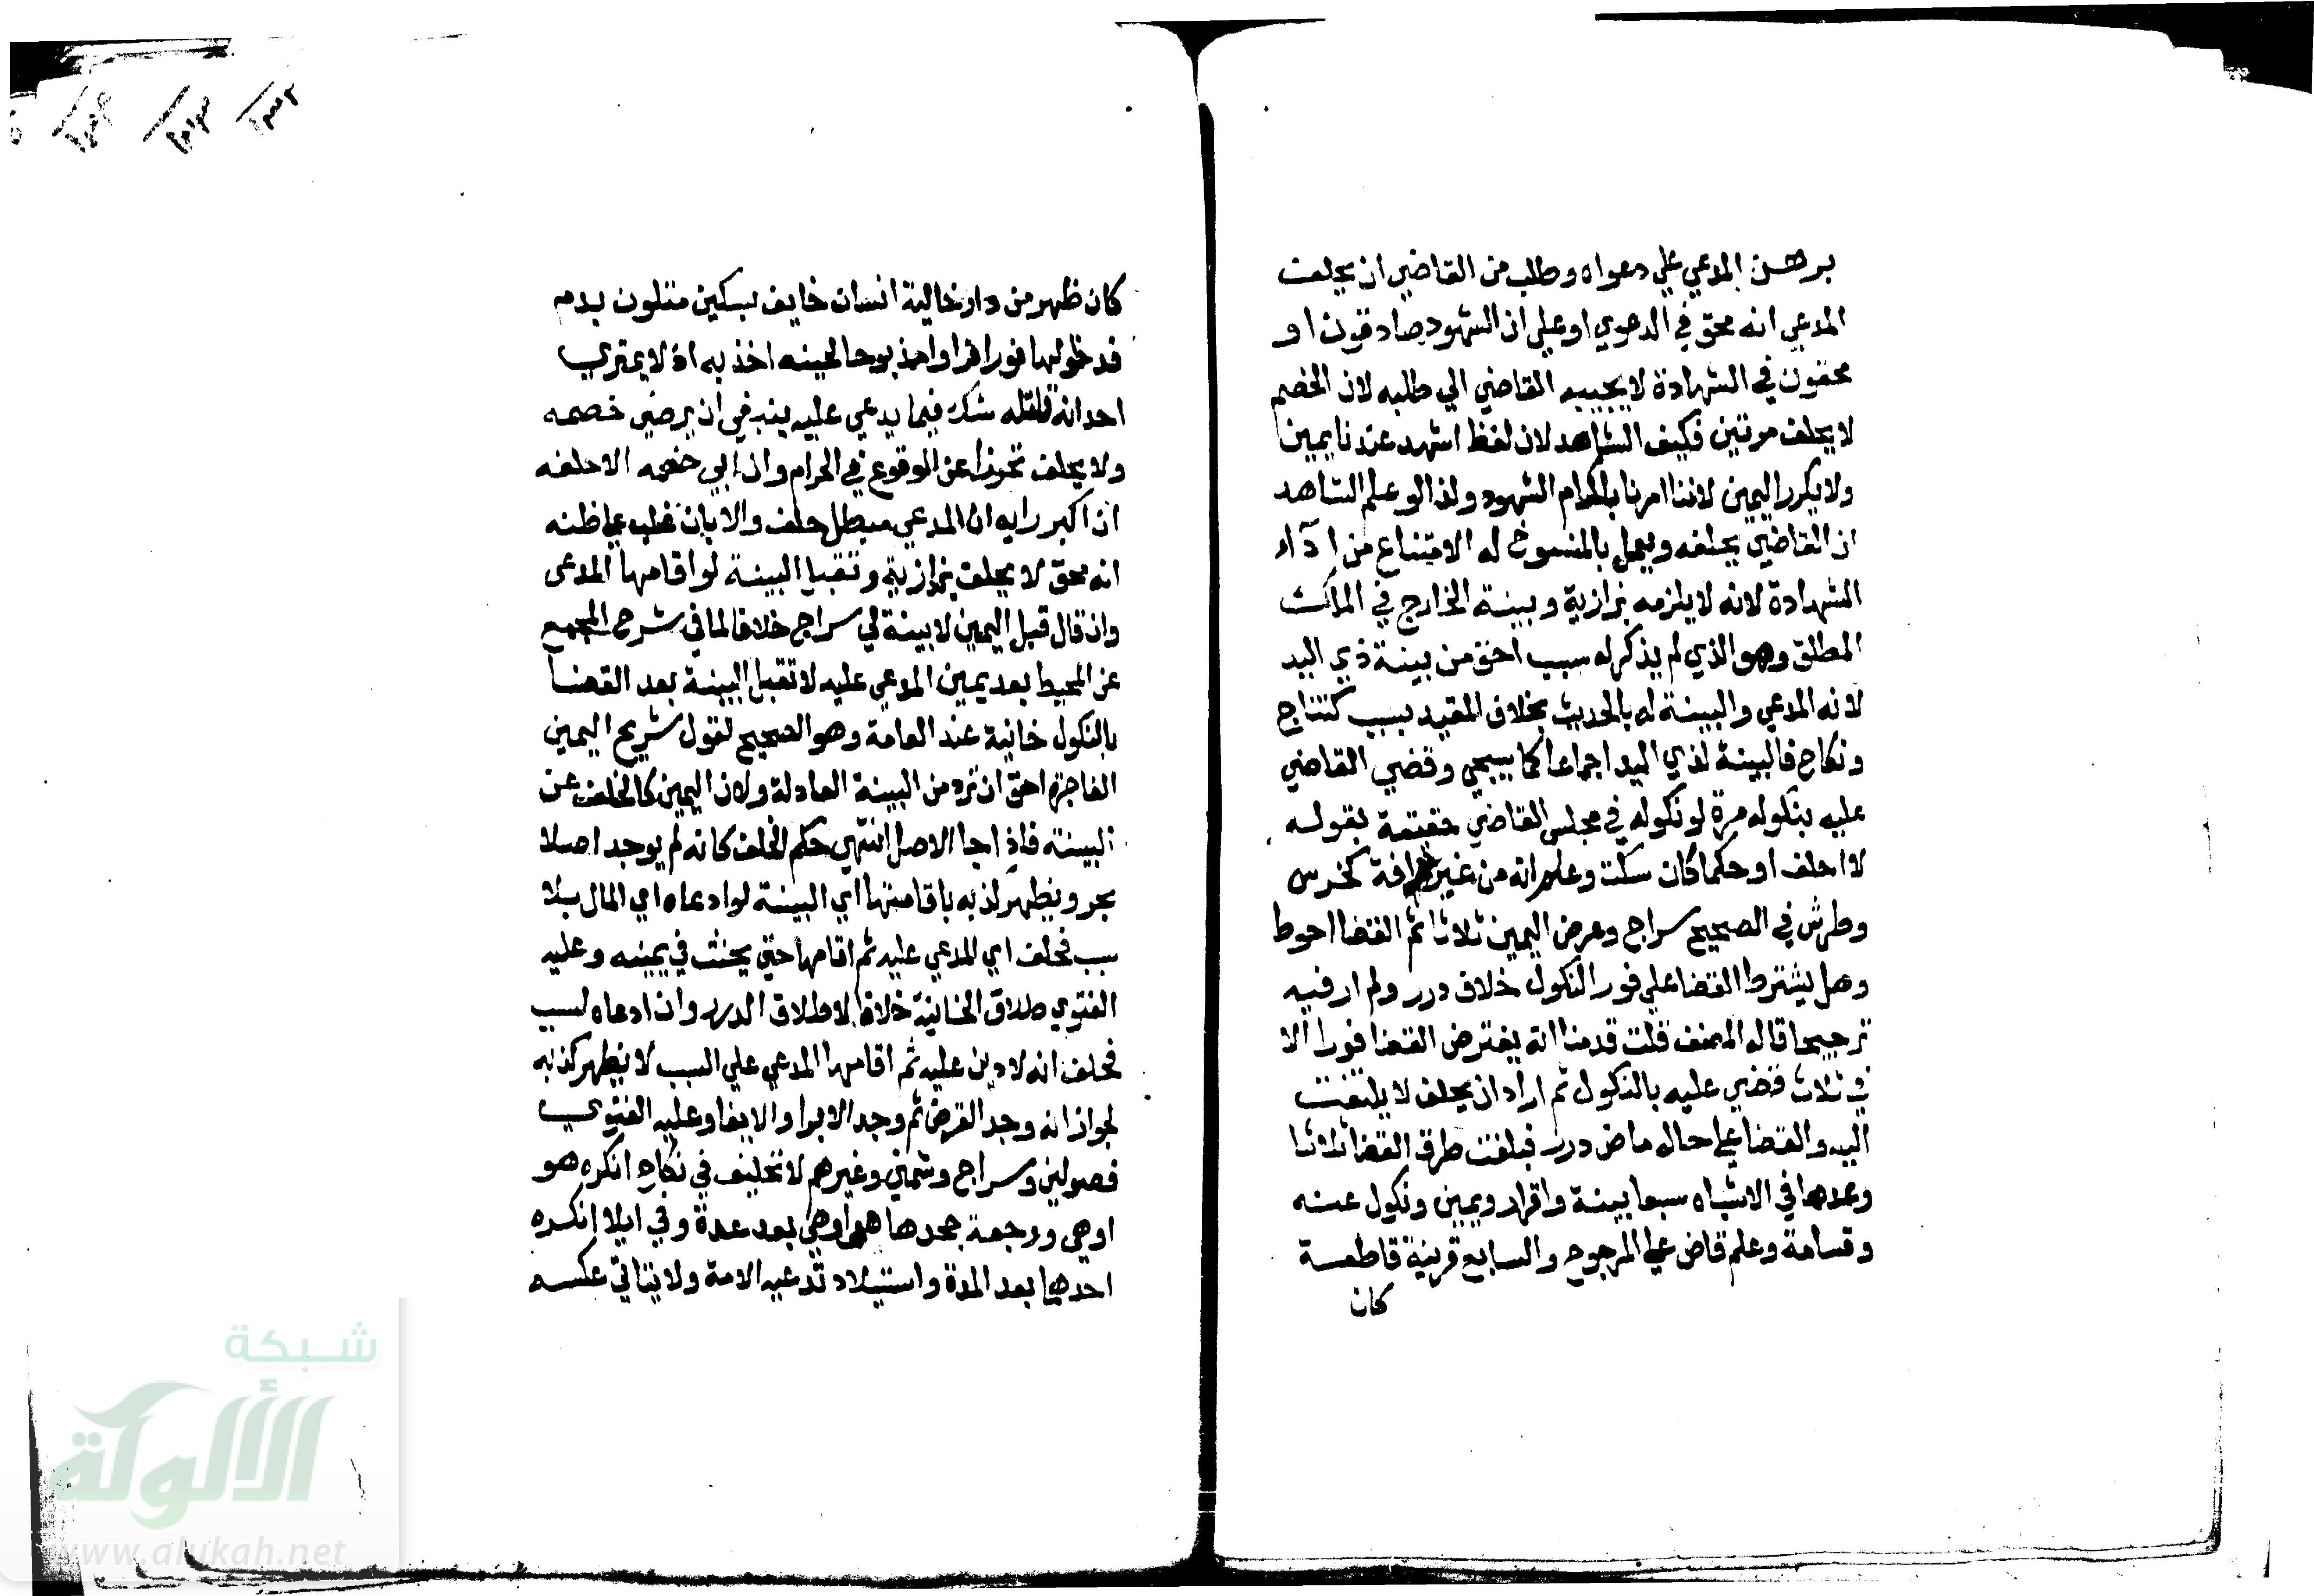 برهن المدعي علي دعواه وطلب من القاضي ان يحلف
المدعي انه محق في الدعوي او علي ان الشهود صادقون او
محقون في الشهادة لا يجيبه القاضي الي طلبه لان الخصم
لا يحلف مرتين فكيف الشاهد لان لفظ اشهد عندنا يمين
ولا يكرر اليمين لاننا امرنا باكرام الشهود ولذا لو علم الشاهد
ان القاضي يحلفه ويعمل بالمنسوخ له الامتناع من ادآء
الشهادة لانه لا يلزمه بزازية وبينة الخارج في الملك
المطلق وهو الذي لم يذكر له سبب احق من بينة ذي اليد
لانه المدعي والبينة له بالحديث بخلاف المقيد بسبب كنتاج
ونكاح فالبينة لذي اليد اجماعا كما سيجي وقضي القاضي
عليه بنكوله مرة لو نكوله في مجلس القاضي حقيقة بقوله
لا احلف او حكما كان سكت وعلم انه من غير افة كخرس
وطرش في الصحيح سراج وعرض اليمين ثلاثا ثم القضا احوط
وهل يشترط القضا علي فور النكول خلاف درر ولم ار فيه
ترجيحا قاله المصنف قلت قدمنا انه يفترض القضا فورا الا
في ثلاث قضي عليه بالنكول ثم اراد ان يحلف لا يلتفت
اليه والقضا علي حاله ماض درر فبلغت طرق القضا ثلاثا
وعدها في الاشباه سبعا بينة واقرار ويمين ونكول عنه
وقسامة وعلم قاض علي المرجوح والسابع قرينة قاطعة
كان
كان ظهر من دار خالية انسان خايف بسكين متلون بدم
فدخلوها فورا فراوا مذبوحا لحينه اخذ به اذ لا يمتري
احد انه قاتله شك فيما يدعي عليه ينبغي ان يرضي خصمه
ولا يحلف تحرزا عن الوقوع في الحرام وان ابي خصمه الا حلفه
ان اكبر رايه ان المدعي مبطل حلف والا بان غلب علي ظنه
انه محق لا يحلف بزازية وتقبل البينة لو اقامها المدعي
وان قال قبل اليمين لا بينة لي سراج خلافا لما في شرح المجمع
عن المحيط بعد يمين المدعي عليه لا تقبل البينة بعد القضا
بالنكول خانية عند العامة وهو الصحيح لقول شريح اليمين
الفاجرة احق ان ترد من البينة العادلة ولان اليمين كالخلف عن
البينة فاذا جا الاصل انتهي حكم الخلف كانه لم يوجد اصلا
بحر ويظهر كذبه باقامتها اي البينة لو ادعاه اي المال بلا
سبب فحلف اي المدعي عليه ثم اقامها حتي يحنث في يمينه وعليه
الفتوي طلاق الخانية خلافا لاطلاق الدرر وان ادعاه لسبب
فحلف انه لا دين عليه ثم اقامها المدعي علي السبب لا يظهر كذبه
لجواز انه وجد القرض ثم وجد الابرا والايفا وعليه الفتوي
فصولين وسراج وشمني وغيرهم لا تحليف في نكاح انكره هو
او هي ورجعة جحدها هو او هي بعد عدة وفي ايلا انكره
احدهما بعد المدة واستيلاد تدعيه الامة ولا يتاتي عكسه
شبكة
الألوكة
www.alukah.net